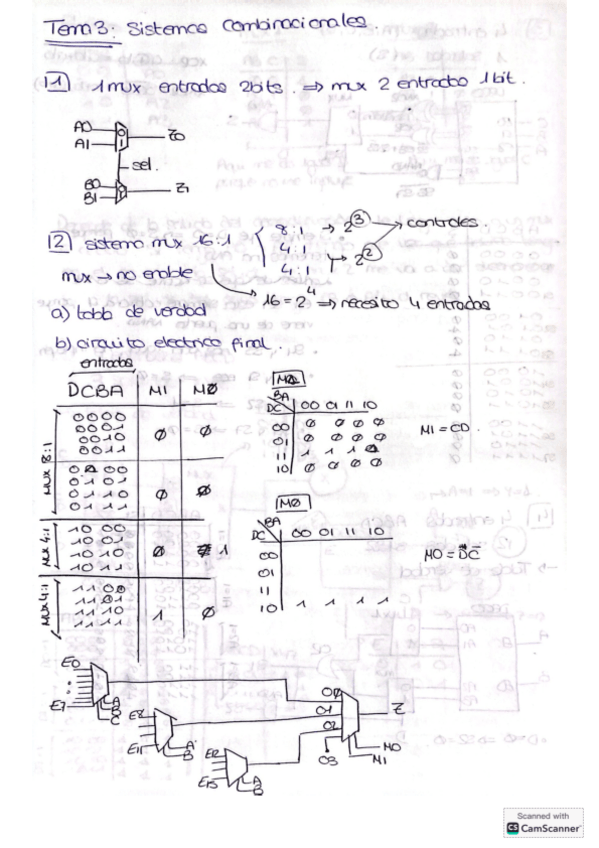 Tema 3: Sistemas Combinacionales.
11 1 mux entradas 2bits. ⇒ mux 2 entradas 1bit.
A0
A1
Z0
sel.
B0
B1
Z1
12 sistema mux 16:1
8:1 → 2^3 → controles.
4:1
4:1 → 2^2
mux → no enable
16 = 2^4 ⇒ necesito 4 entradas
a) tabla de verdad
b) circuito electrico final.
entradas
DCBA M1 MØ
MUX 8:1
0000
0001
0010
0011
Ø Ø
0100
0101
0110
0111
Ø Ø
MUX 4:1
10 00
10 01
10 10
10 11
Ø 1
MUX 4:1
1100
1101
1110
1111
1 Ø
BA
DC 00 01 11 10
00 Ø Ø Ø Ø
01 Ø Ø Ø Ø
11 1 1 1
10 Ø Ø Ø Ø
M1 = CD.
MØ
BA
DC 00 01 11 10
00
01
11
10 1 1 1 1
E0
E7
A
B
C
E8
E11
A
B
E12
E15
A
B
O1
O2
O3
Z
M0
M1
Scanned with
CS CamScanner